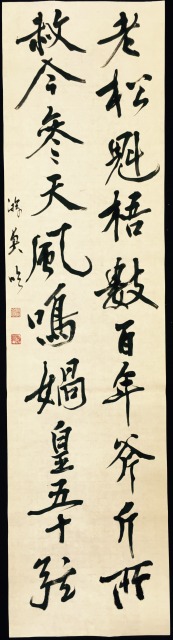 老松魁梧數百年斧斤所
赦今參天風鳴媧皇五十弦